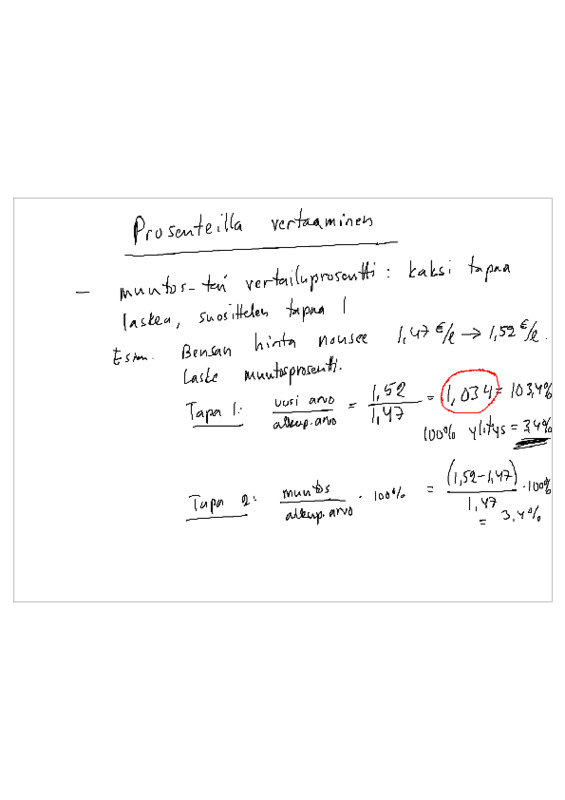 Prosenteilla vertaaminen
- muutos- tai vertailuprosentti: kaksi tapaa
laskea, suosittelen tapaa 1
Esim. Bensan hinta nousee 1,47 €/l → 1,52 €/l.
Laske muutosprosentti.
Tapa 1: uusi arvo / alkup. arvo = 1,52 / 1,47 = 1,034 = 103,4%
100% ylitys = 3,4%
Tapa 2: muutos / alkup. arvo · 100% = (1,52-1,47) / 1,47 · 100%
= 3,4%